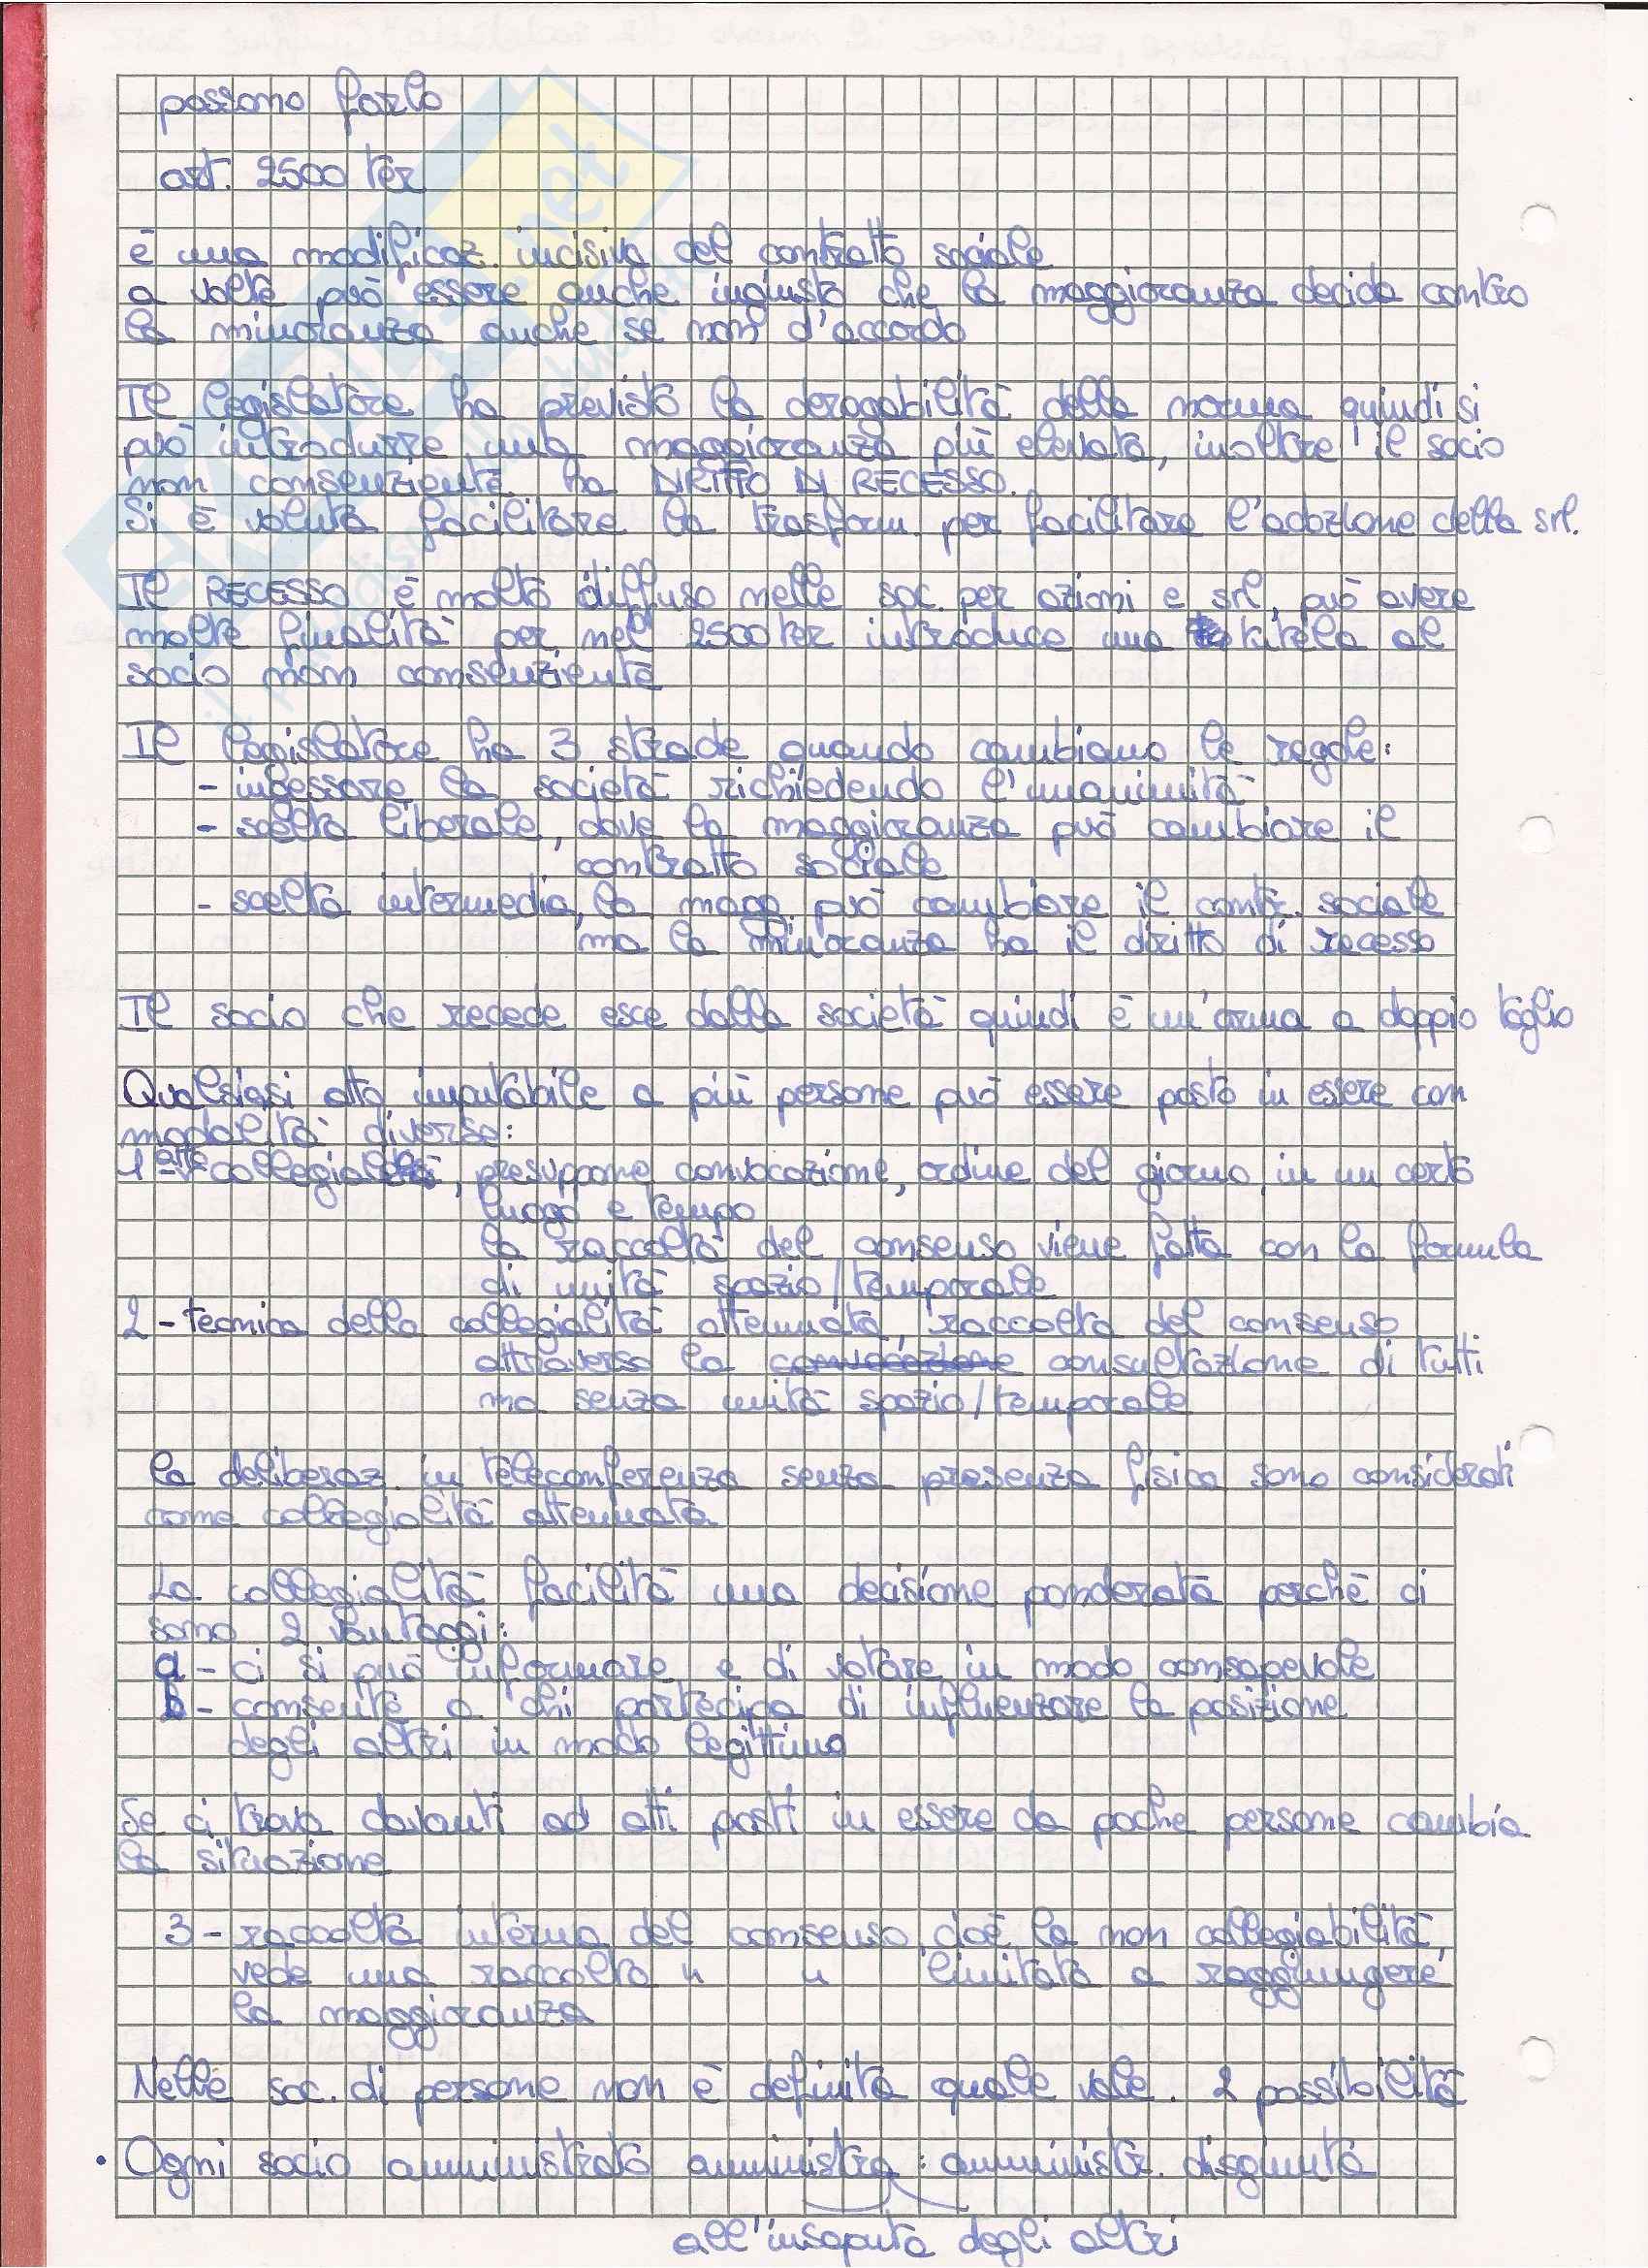 possono farlo
art. 2500 ter
è una modificaz. incisiva del contratto sociale
a volte può essere anche ingiusto che la maggioranza decida contro
la minoranza anche se non d'accordo
Il legislatore ha previsto la derogabilità della norma quindi si
può introdurre una maggioranza più elevata, inoltre il socio
non consenziente ha DIRITTO DI RECESSO.
Si è voluta facilitare la trasform. per facilitare l'adozione della srl.
Il RECESSO è molto diffuso nelle soc. per azioni e srl, può avere
molte finalità per nel 2500 ter introduce una tutela al
socio non consenziente
Il legislatore ha 3 strade quando cambiamo le regole:
- ingessare la società richiedendo l'unanimità
- scelta liberale, dove la maggioranza può cambiare il
contratto sociale
- scelta intermedia, la magg. può cambiare il contr. sociale
ma la minoranza ha il diritto di recesso
Il socio che recede esce dalla società quindi è un'arma a doppio taglio
Qualsiasi atto imputabile a più persone può essere posto in essere con
modalità diverse:
1 - atto collegiale, presuppone convocazione, ordine del giorno, in un certo
luogo e tempo
la raccolta del consenso viene fatta con la formula
di unità spazio/temporale
2 - tecnica della collegialità attenuata, raccolta del consenso
attraverso la convocazione consultazione di tutti
ma senza unità spazio/temporale
la deliberaz. in teleconferenza senza presenza fisica sono considerati
come collegialità attenuata
La collegialità facilità una decisione ponderata perchè ci
sono 2 vantaggi:
a - ci si può informare e di votare in modo consapevole
b - consente a chi partecipa di influenzare la posizione
degli altri in modo legittimo
Se ci trova davanti ad atti posti in essere da poche persone cambia
la situazione
3 - raccolta interna del consenso cioè la non collegiabilità,
vede una raccolta " " limitata a raggiungere
la maggioranza
Nelle soc. di persone non è definita quale vale. 2 possibilità
• Ogni socio amministrato amministra: amministr. disgiunta
all'insaputa degli altri